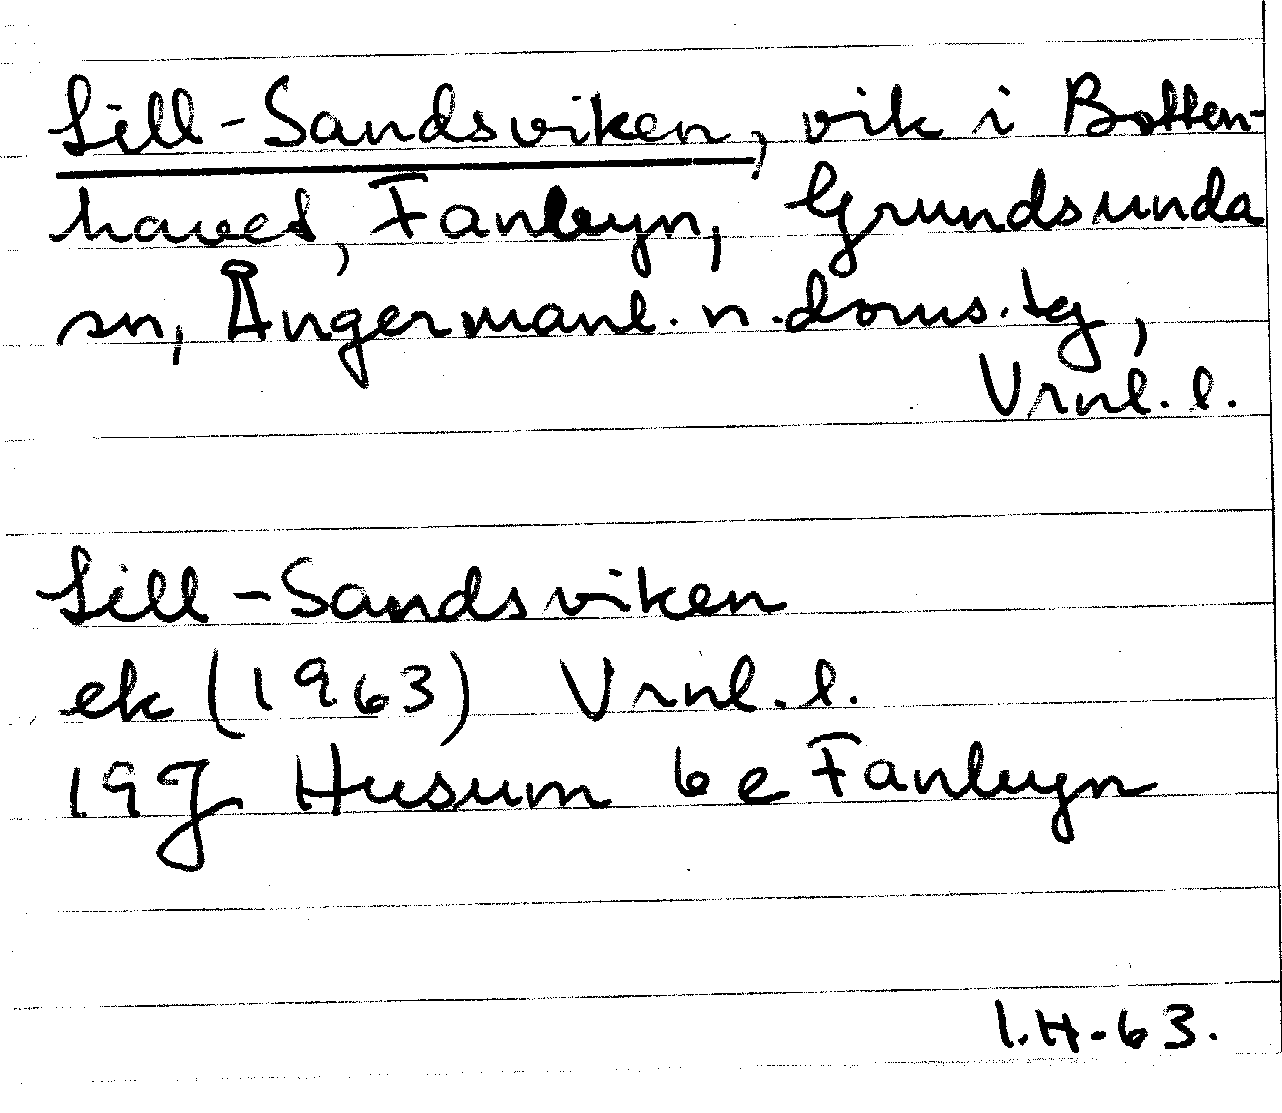 Lill-Sandsviken, vik i Botten-
havet, Fanbyn, Grundsunda
sn, Ångermanl. n. doms. tg,
Vrnl. l.
Lill-Sandsviken
ek (1963) Vrnl. l.
19J Husum 6e Fanbyn
I.H-63.